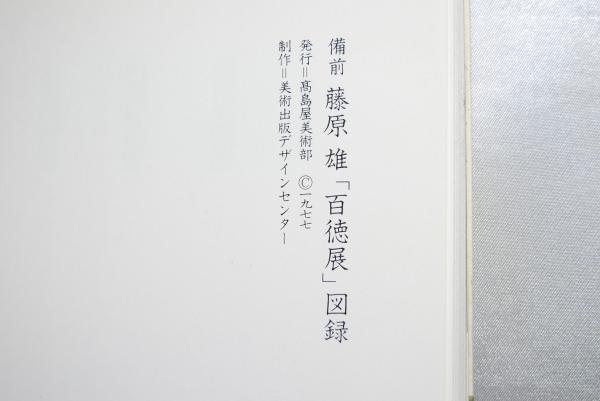 備前 藤原 雄「百徳展」図録
発行＝髙島屋美術部 Ⓒ一九七七
制作＝美術出版デザインセンター